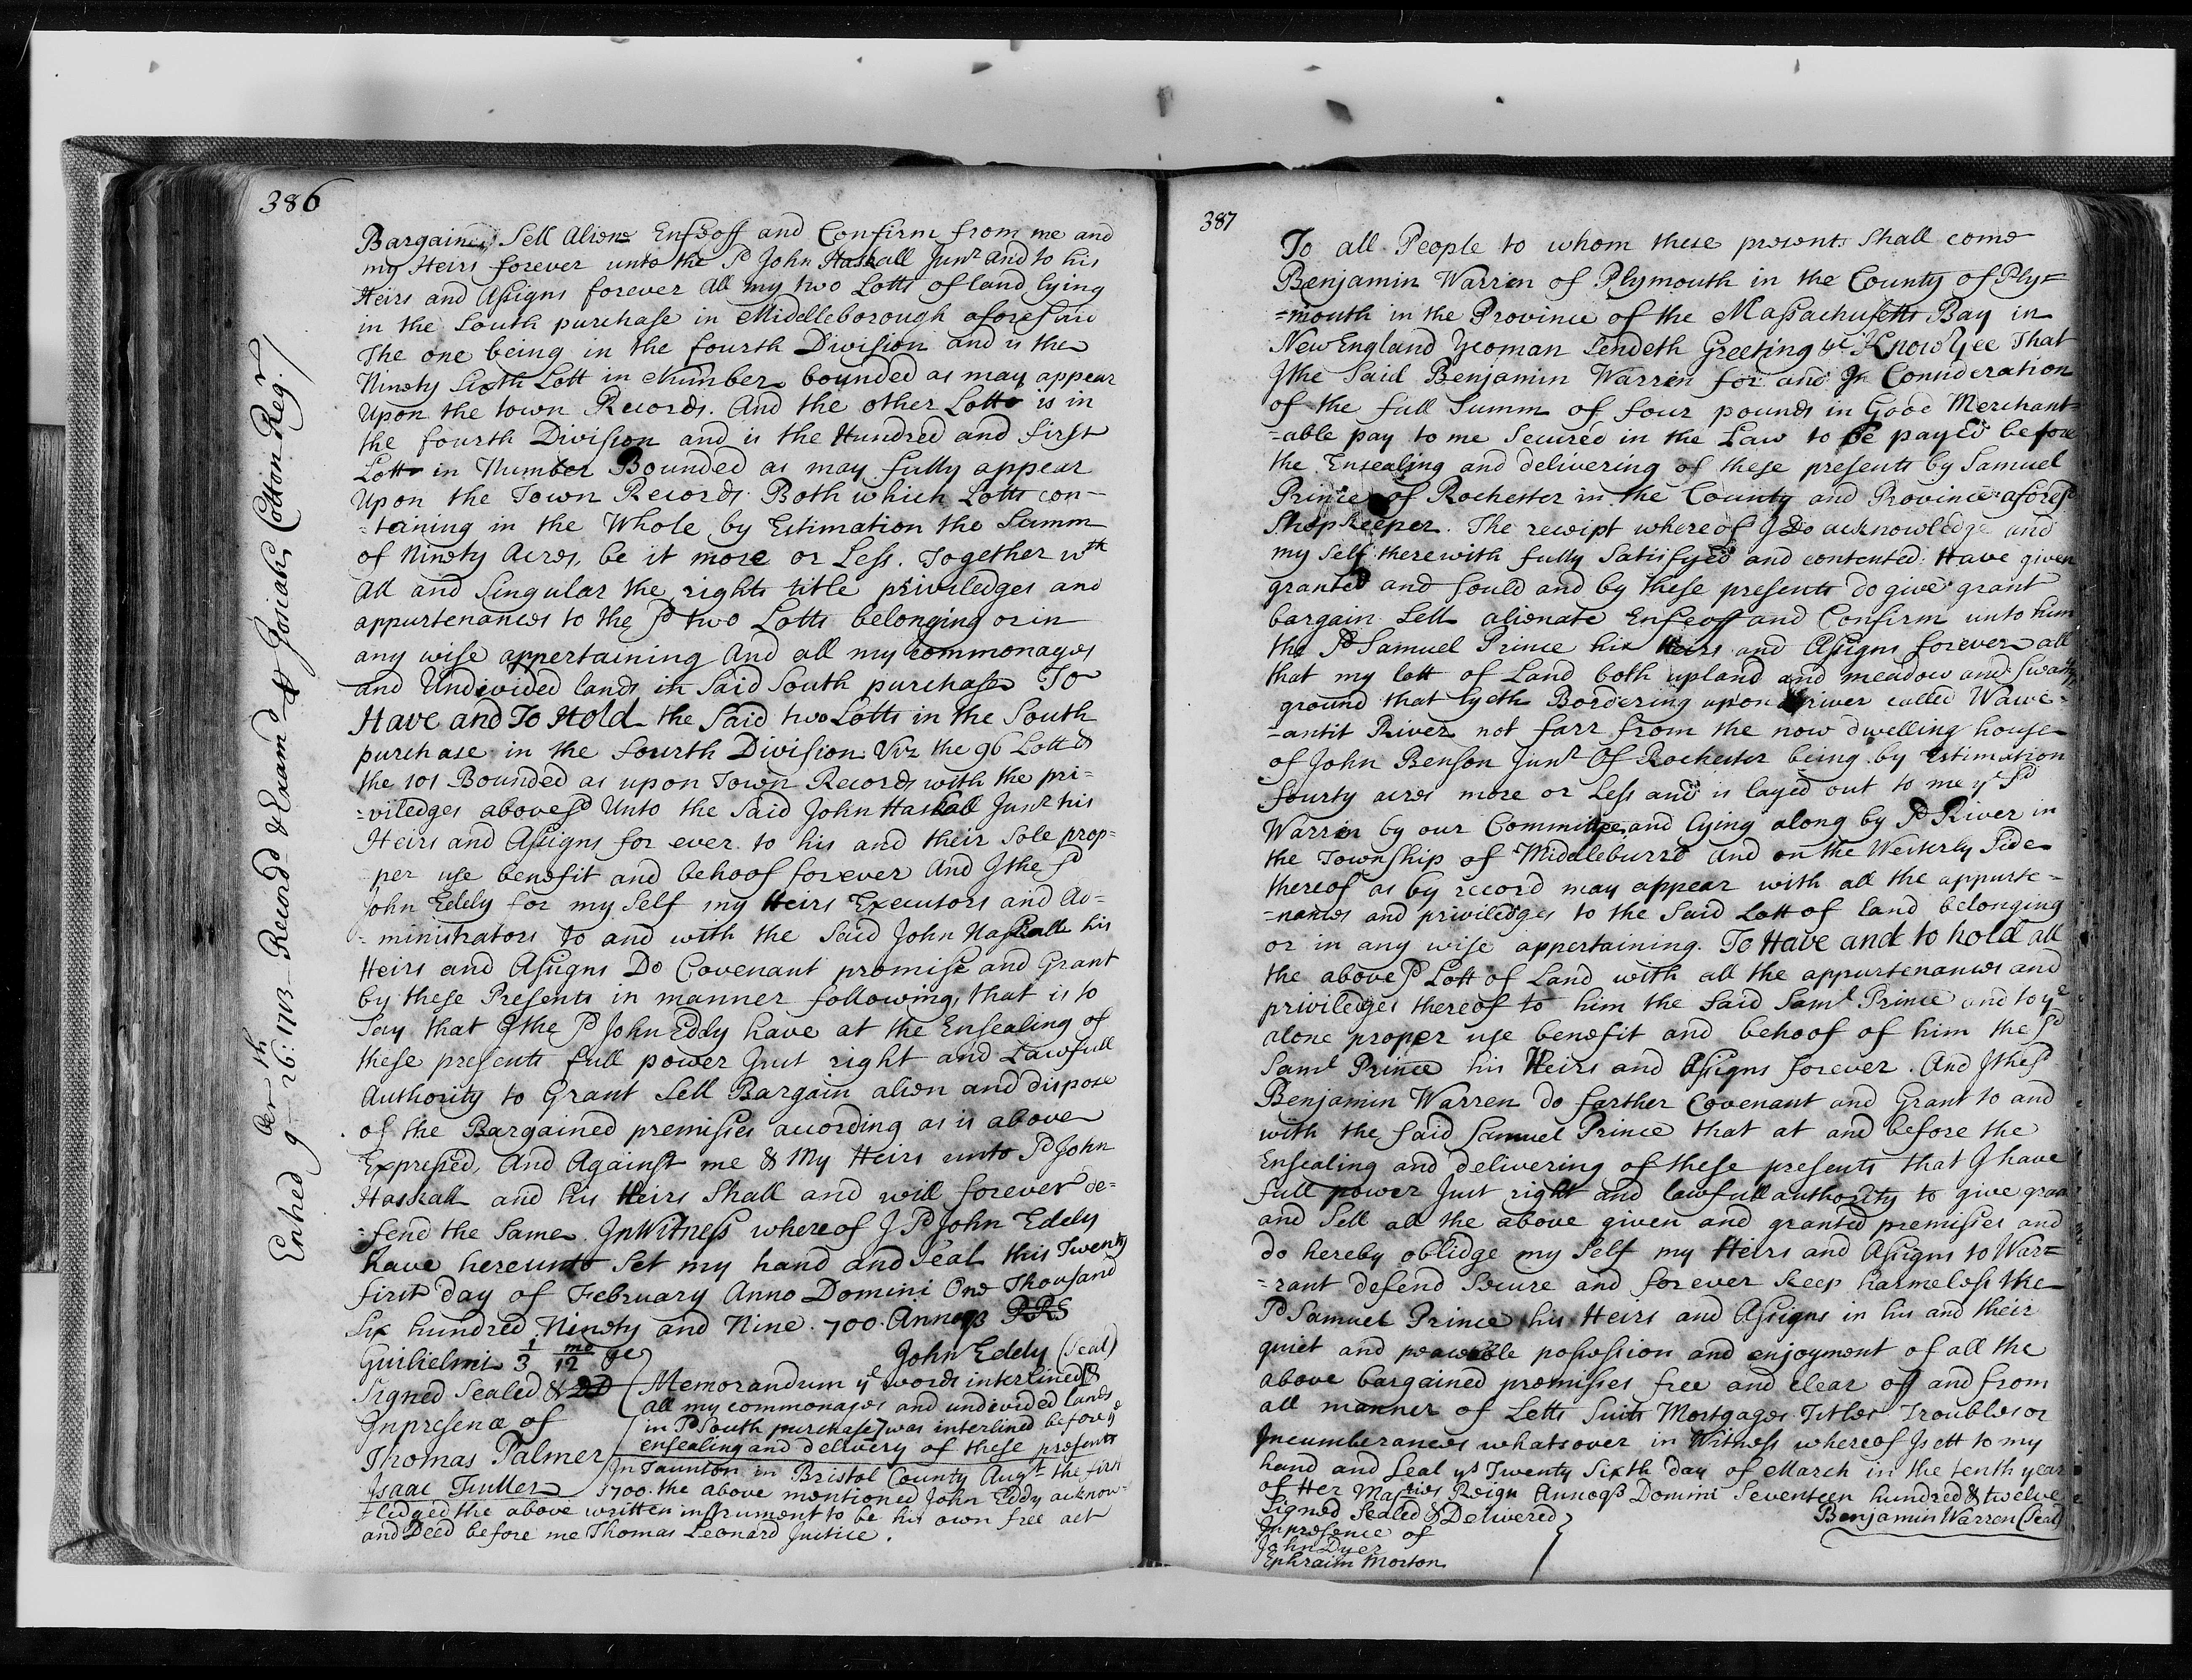 386
Bargained Sell Aliene Enfeoff and Confirm from me and
my Heirs forever unto the Sd John Haskall Junr and to his
Heirs and Assigns forever all my two Lotts of land lying
in the South purchase in Middleborough aforesaid
The one being in the fourth Division and is the
Ninety Sixth Lott in Number bounded as may appear
Upon the town Records. And the other Lott is in
the fourth Division and is the Hundred and first
Lott in Number Bounded as may fully appear
Upon the Town Records Both which Lotts con-
-taining in the Whole by Estimation the Summ
of Ninety Acres, be it more or Less. Together wth
all and Singular the rights title priviledges and
appurtenances to the Sd two Lotts belonging or in
any wise appertaining And all my commonages
and Undivided lands in Said South purchase To
Have and To Hold the Said two Lotts in the South
purchase in the fourth Division Viz the 96 Lott &
the 101 Bounded as upon Town Records with the pri=
=viledges aboveSd Unto the Said John Haskall Junr his
Heirs and Assigns for ever to his and their Sole prop=
per use benefit and behoof forever And I the Sd
John Eddy for my Self my Heirs Executors and Ad=
=ministrators to and with the Said John Haskall his
Heirs and Assigns Do Covenant promise and Grant
by these Presents in manner following, that is to
Say that I the Sd John Eddy have at the Ensealing of
these presents full power Just right and Lawfull
Authority to Grant Sell Bargain alien and dispose
of the Bargained premisses according as is above
Expressed, And Against me & My Heirs unto Sd John
Haskall and his Heirs Shall and will forever de=
=fend the Same. In Witness whereof I Sd John Eddy
have hereunto Set my hand and Seal this Twenty
first day of February Anno Domini One Thousand
Six hundred Ninety and Nine. 700. Annoqs RRS
Guilielmi 3 1/ mo 12 ge
John Eddy (Seal)
Signed Sealed & DD
In presence of
Thomas Palmer
Isaac Fuller
Memorandum ye words interlined [&
all my commonages and undevided lands
in Sd South purchase] was interlined before ye
ensealing and delivery of these presents
In Taunton in Bristol County Augt the first
1700. the above mentioned John Eddy acknow-
=ledged the above written instrument to be his own free act
and Deed before me Thomas Leonard Justice.
Entred 9ber 26th: 1713 Record & Examd p Josiah Cotton Regr.
387
To all People to whom these presents Shall come
Benjamin Warren of Plymouth in the County of Ply=
=mouth in the Province of the Massachusetts Bay in
New England Yeoman Sendeth Greeting &c Know Yee That
I the Said Benjamin Warren for and In Consideration
of the full Summ of four pounds in Good Merchant=
=able pay to me Secured in the Law to be payed before
the Ensealing and delivering of these presents by Samuel
Prince of Rochester in the County and Province aforesd
Shopkeeper. The receipt whereof I Do acknowledge and
my Self therewith fully Satisfyed and contented: Have given
granted and Sould and by these presents do give grant
bargain Sell alienate Enfeoff and Confirm unto him
the Sd Samuel Prince his Heirs and Assigns forever all
that my lott of Land both upland and meadow and Swamp
ground that lyeth Bordering upon river called Wawe=
=antit River not farr from the now dwelling house
of John Benson Junr Of Rochester being by Estimation
fourty acres more or Less and is layed out to me ye Sd
Warren by our Committee, and lying along by Sd River in
the Township of Middleburro and on the Westerly Side
thereof as by record may appear with all the appurte=
=nances and priviledges to the Said Lott of land belonging
or in any wise appertaining. To Have and to hold all
the above Sd Lott of Land with all the appurtenances and
priviledges thereof to him the Said Saml Prince and to ye
alone proper use benefit and behoof of him the Sd
Saml Prince his Heirs and Assigns forever. And I the Sd
Benjamin Warren do farther Covenant and Grant to and
with the Said Samuel Prince that at and before the
Ensealing and delivering of these presents that I have
full power Just right and lawfull authority to give grant
and Sell all the above given and granted premisses and
do hereby oblidge my Self my Heirs and Assigns to War=
=rant defend Secure and forever keep harmeless the
Sd Samuel Prince his Heirs and Assigns in his and their
quiet and peaceable possession and enjoyment of all the
above bargained premisses free and clear of and from
all manner of Letts Suits Mortgages Titles Troubles or
Incumberances whatsover in Witness whereof I sett to my
hand and Seal ys Twenty Sixth day of March in the tenth year
of Her Majties Reign Annoqs Domini Seventeen hundred & twelve
Signed Sealed & Delivered
Benjamin Warren (Seal)
In presence of
John Dyer
Ephraim Morton